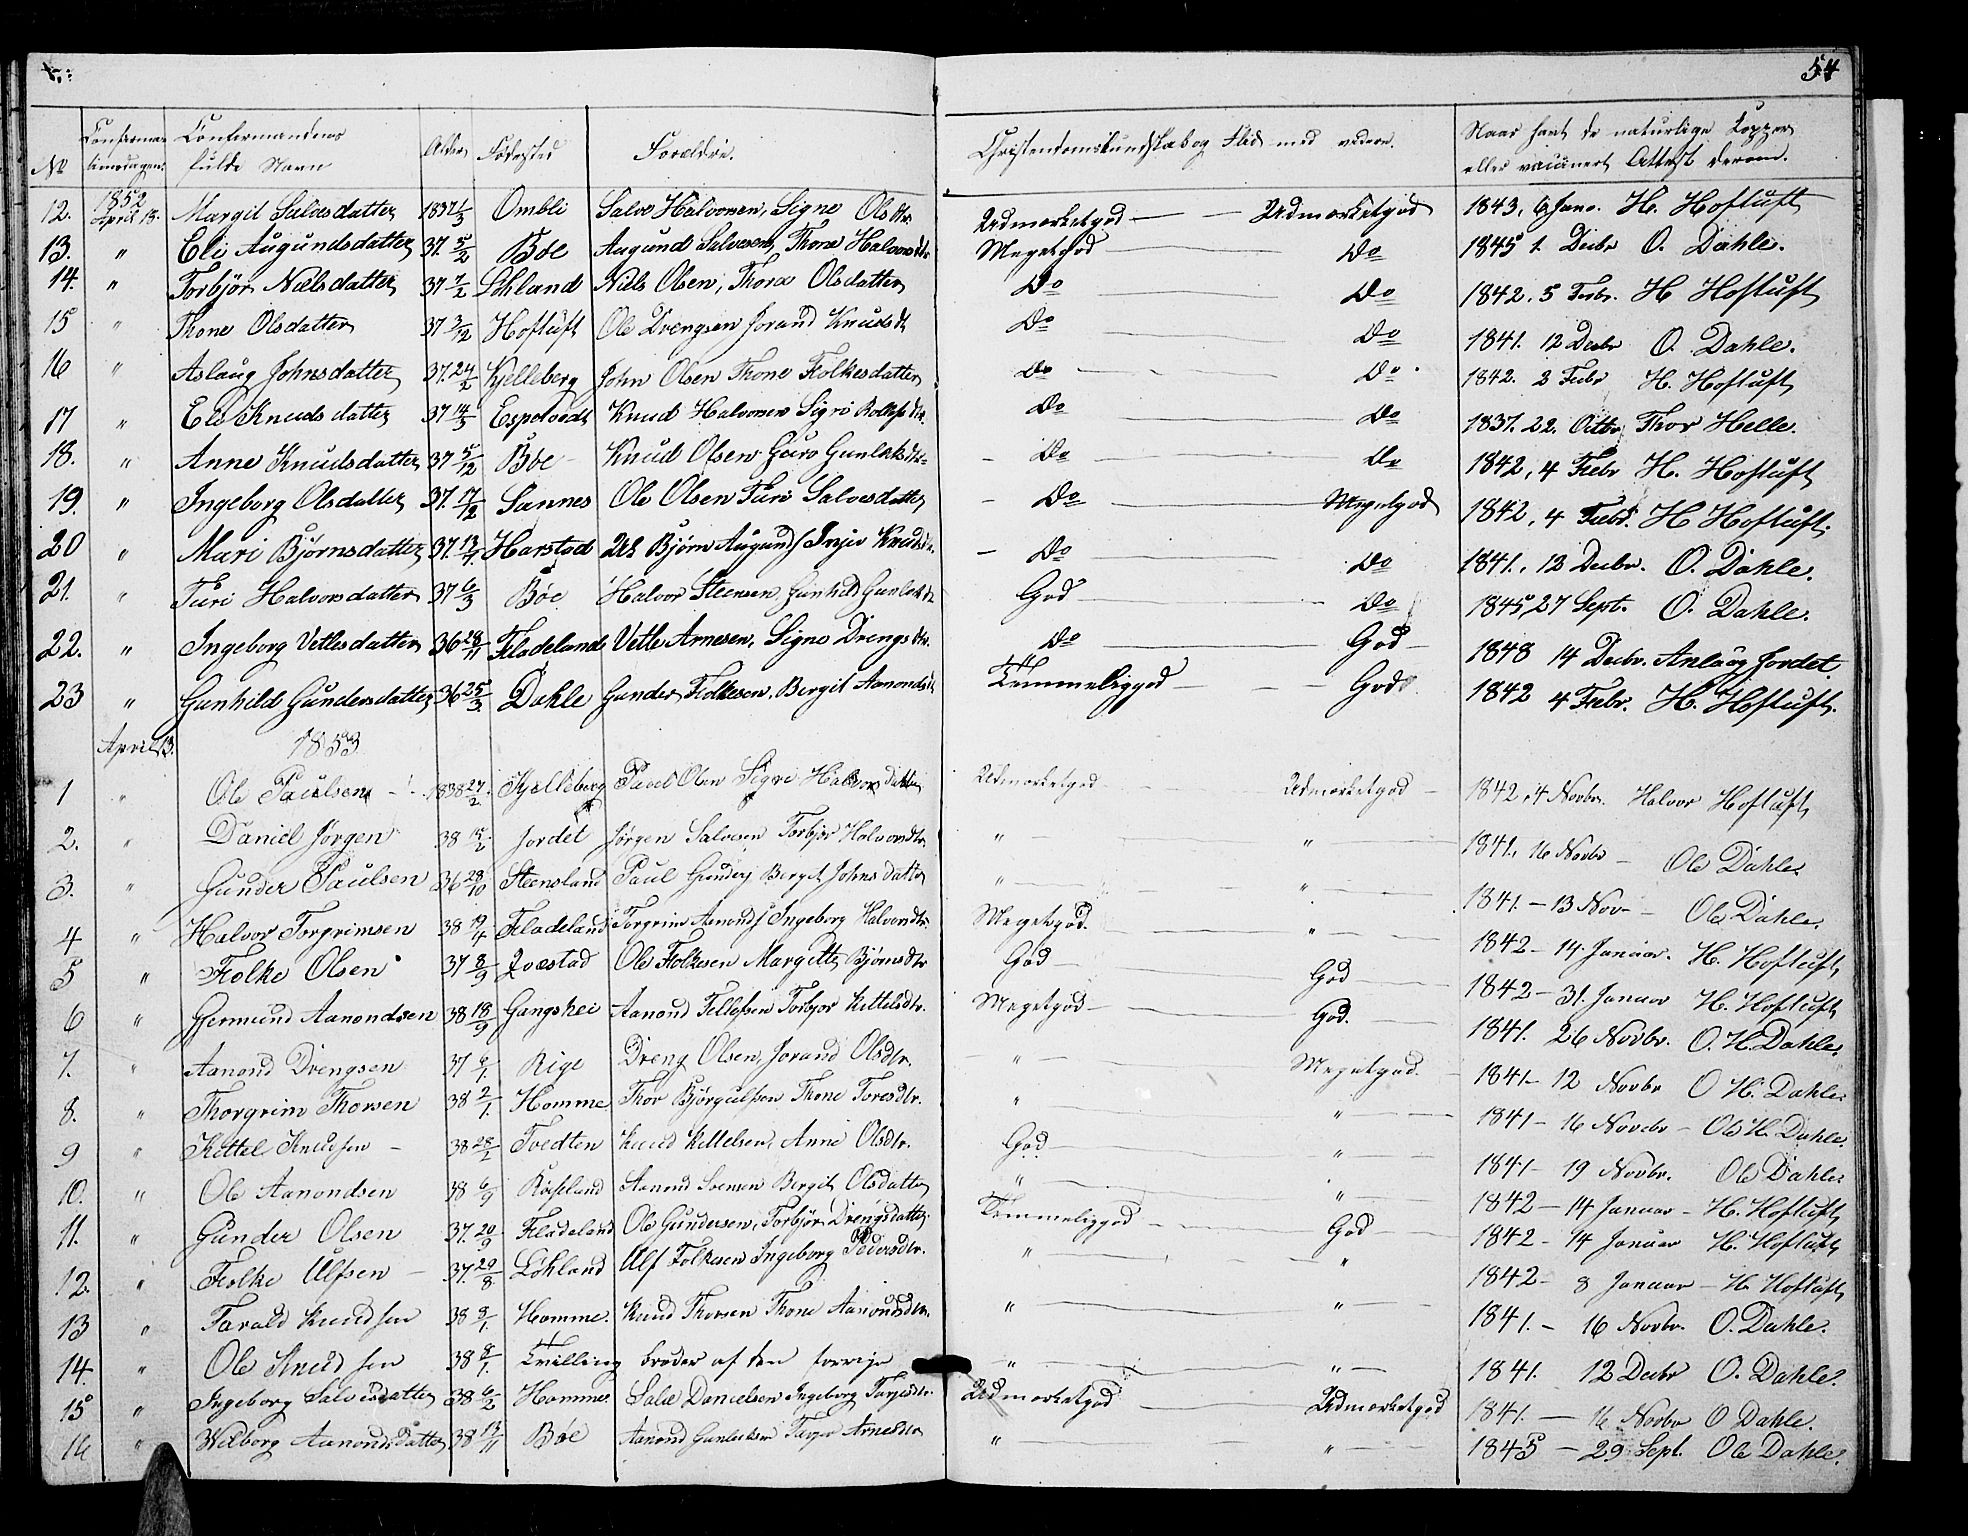 54
No Confirma- tionsdagen. Confirmandens fulde Navn Alder Fødested Forældre. Christendomskundskab og Flid med videre. Naar havt de naturlige Kopper eller vaccinert Attest derom.
12. 1852 April 18. Margit Salvesdatter 1837 1/3 Ombli Salve Halvorsen, Signe Olsdtr Udmærketgod — — Udmærketgod 1843, 6 Janr. H. Hoftuft
13. " Eli Augundsdatter 37. 5/2 Bøe Augund Salvesen, Thone Halvorsdtr Megetgod — Do 1845 1. Decbr O. Dahle.
14. " Torbjør Nielsdatter 37 7/2 Løhland Niels Olsen, Thora Olsdatter Do — Do 1842, 5 Febr. H Hoftuft
15 " Thone Olsdatter 37 3/12 Hoftuft Ole Drengsen Jorand Knudsdt Do — Do 1841. 12 Decbr O. Dahle.
16 " Aslaug Johnsdatter 37. 24/2 Kjelleberg John Olsen Thone Folkesdatter Do — Do. 1842. 2 Febr H. Hoftuft
17 " Eli Knudsdatter 37 14/3 Espetvedt Knud Halvorsen Sigri Rollefsdtr. Do — Do 1837. 22. Octbr Thor Helle.
18. " Anne Knudsdatter 37 5/12 Bøe Knud Olsen Guro Gunleksdtr - Do — Do 1842, 4 Febr H. Hoftuft
19. " Ingeborg Olsdatter 37. 17/12 Sannes Ole Olsen Turi Salvesdatter - Do — Megetgod 1842, 4 Febr. H Hoftuft.
20 " Mari Bjørnsdatter 37. 13/4 Harstad Bjørn Augunds Knudsdtr. - Do — Do 1841. 12 Decbr. O. Dahle.
21. " Turi Halvorsdatter 37 6/3 Bøe Halvor Steensen, Gunhild Gunleksdt God — Do 1845, 27 Sept. O. Dahle.
22. " Ingeborg Vetlesdatter 36 28/11 Fladeland Vetle Arnesen, Signe Drengsdtr. Do — God — 1848 14 Decbr. Anlaug Jordet.
23 " Gunhild Gundersdatter 36 25/3 Dahle Gunder Folkesen, Bergit Aanondsdt Temmeliggod — — God 1842 4 Febr. H. Hoftuft.
April 13. 1853
1 " Ole Paulsen 1838 27/2 Kjelleberg Paul Olsen Sigri Halvorsdatter Udmærketgod Udmærketgod — 1842, 4 Novbr. Halvor Hoftuft
2. " Daniel Jørgen 38 15/2 Jordet Jørgen Salvesen Torbjør Halvorsdtr " — " — 1841, 16 Novbr — Ole Dahle.
3. " Gunder Paulsen 36 28/10 Steensland Paul Gunders Bergit Johnsdatter " — " — 1841 — 13 Nov — Ole Dahle.
4 " Halvor Torgrimsen 38 19/4 Fladeland Torgrim Aanonds Ingeborg Halvorsdtr. Megetgod. — " — 1842 — 14. Januar. H. Hoftuft
5 " Folke Olsen 37 8/9 Ole Folkesen Margitte Bjørnsdtr God — God — 1842 — 31. Januar H. Hoftuft
6 " Gjermund Aanondsen 38 18/9 Gangshei Aanond Tellefsen Torbjør Kittelsdtr. Megetgod — God. — 1841. 26 Novbr. O. H. Dahle.
7. " Aanond Drengsen 37 6/1 Rige Dreng Olsen, Jorand Olsdtr. — " — Megetgod. — 1841 — 12 Novbr O H. Dahle.
8. " Thorgrim Thorsen 38 2/1. Homme Thor Bjørgulfsen Thone Toresdtr. " — " — 1841 — 16 Novbr — Ole H. Dahle.
9 " Kittel Knudsen — 38 28/2 Tvedten Knud Kittelsen, Anne Olsdtr. God — " — 1841 — 19 Novbr. Ole Dahle
10. " Ole Aanondsen 38 6/9 Røiseland Aanond Svensen Bergit Olsdatter " — " — 1842 — 14 Januar — H. Hoftuft
11. " Gunder Olsen 37. 20/9 Fladeland Ole Gundersen, Torbjør Drengsdatter Temmeliggod — God — 1842 — 14 Januar H. Hoftuft
12. " Folke Ulfsen — 37. 29/8 Løhland Ulf Folkesen Ingeborg Pedersdtr. " — " 1842 — 8 Januar — H. Hoftuft
13 " Tarald Knudsen 38 8/1. Homme. Knud Thorsen Thone Aanondsdtr. " — " — 1841. — 16 Novbr. O. Dahle.
14. " Ole Knudsen 38 8/1. Tvilling broder af den forrige " — " — 1841. 12 Decbr O. Dahle.
15 " Ingeborg Salvesdatter 38 6/2 Homme. Salve Danielsen Ingeborg Targesdtr. Udmærketgod — Udmærketgod 1841. — 16 Novbr O Dahle.
16 " Wilborg Aanondsdatter 38 13/11 Bøe Aanond Gunleksen Targer Arnesdtr " — " — 1845 — 29 Sept. Ole Dahle.